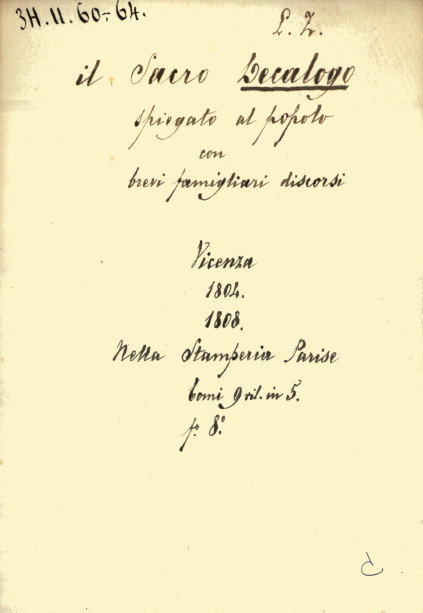 3H.II.60-64.
L. Z.
il Sacro Decalogo
spiegato al popolo
con
brevi famigliari discorsi
Vicenza
1804.
1808.
Nella Stamperia Parise
tomi 9 ril. in 5.
fº 8.º